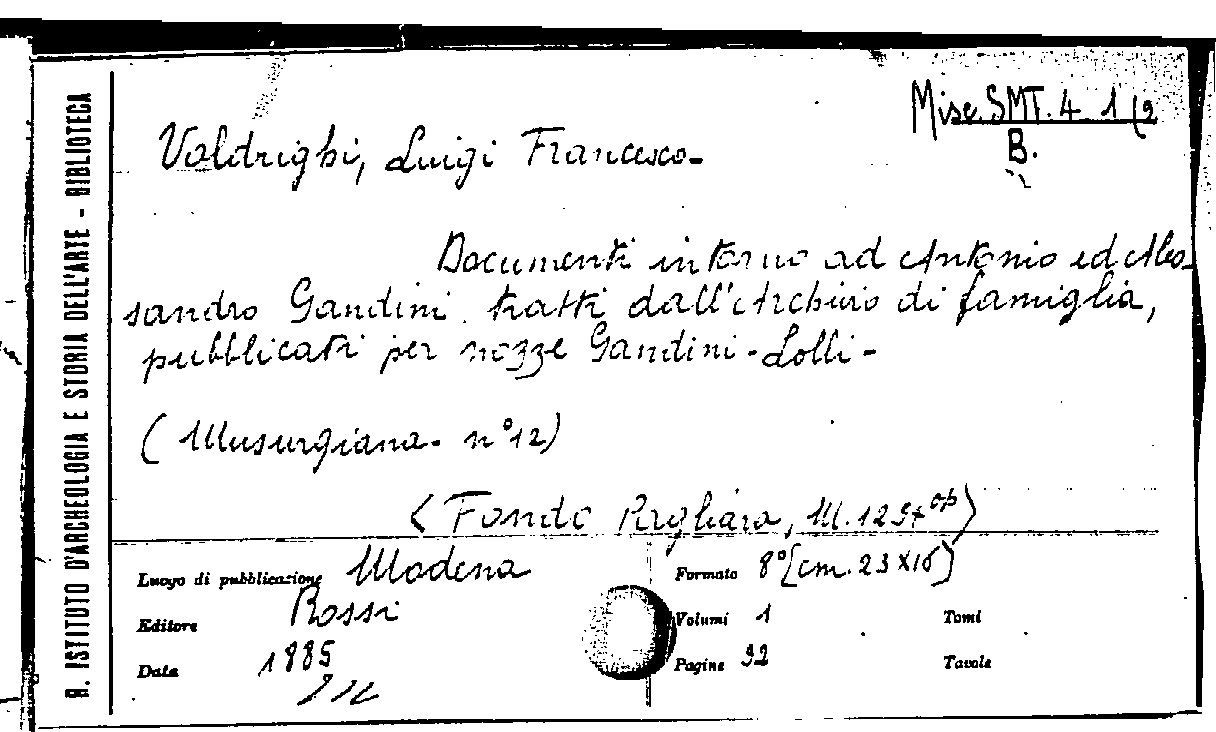 R. ISTITUTO D'ARCHEOLOGIA E STORIA DELL'ARTE - BIBLIOTECA
Misc. SMT. 4 1/2
B.
Valdrighi, Luigi Francesco-
Documenti intorno ad Antonio ed Ales-
sandro Gandini tratti dall'Archivio di famiglia,
pubblicati per nozze Gandini-Lolli-
(Musurgiana- n°12)
<Fondo Pagliara, M.
Luogo di pubblicazione Modena
Formato 8° [cm. 23x16]
Editore Rossi
Volumi 1
Tomi
Data 1885
Pagine 92
Tavole